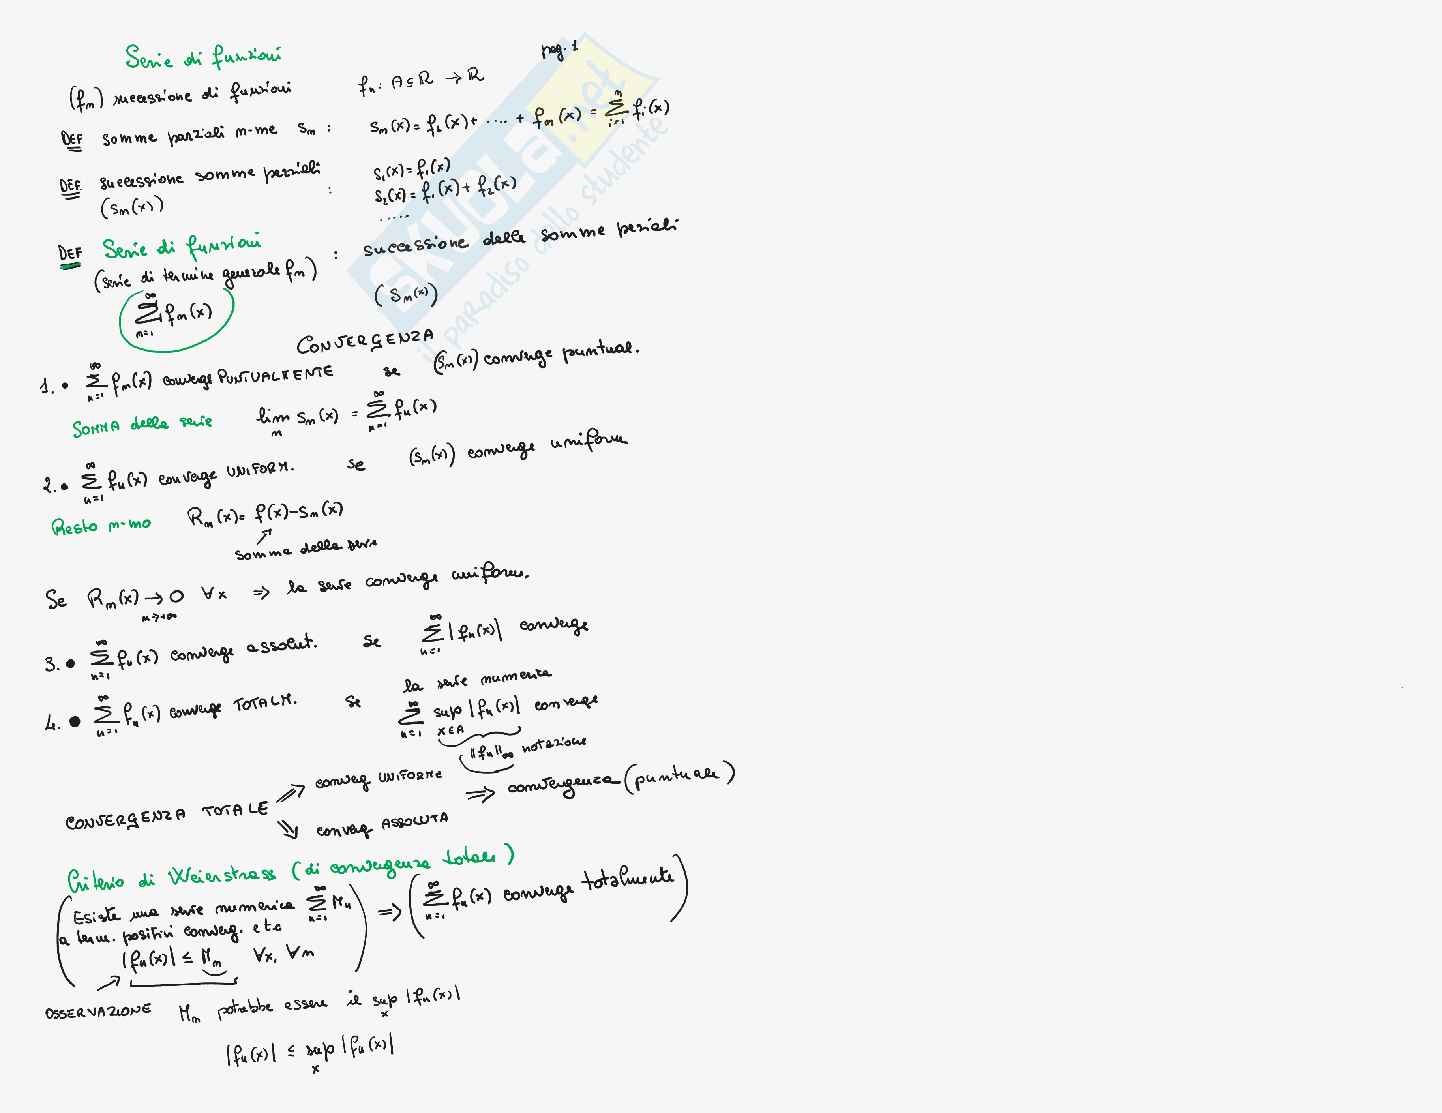 Serie di funzioni
pag. 1
(fₙ) successione di funzioni fₙ: A ⊆ ℝ → ℝ
DEF somme parziali n-me Sₙ : Sₙ(x) = f₁(x) + .... + fₙ(x) = ∑ᵢ₌₁ⁿ fᵢ(x)
DEF successione somme parziali : S₁(x) = f₁(x)
(Sₙ(x)) S₂(x) = f₁(x) + f₂(x)
.....
DEF Serie di funzioni : successione delle somme parziali
(serie di termine generale fₙ)
∑ₙ₌₁^∞ fₙ(x) (Sₙ(x))
CONVERGENZA
1. • ∑ₙ₌₁^∞ fₙ(x) converge PUNTUALMENTE se (Sₙ(x)) converge puntual.
SOMMA della serie limₙ Sₙ(x) = ∑ₙ₌₁^∞ fₙ(x)
2. • ∑ₙ₌₁^∞ fₙ(x) converge UNIFORM. se (Sₙ(x)) converge uniform
Resto n-mo Rₙ(x) = f(x) - Sₙ(x)
somma della serie
Se Rₙ(x) → 0 ∀x ⇒ la serie converge uniform.
n→+∞
3. • ∑ₙ₌₁^∞ fₙ(x) converge assolut. se ∑ₙ₌₁^∞ |fₙ(x)| converge
4. • ∑ₙ₌₁^∞ fₙ(x) converge TOTALM. se la serie numerica
∑ₙ₌₁^∞ sup x∈A |fₙ(x)| converge
||fₙ||∞ notazione
CONVERGENZA TOTALE ⇒ converg UNIFORME
⇒ converg ASSOLUTA ⇒ convergenza (puntuale)
Criterio di Weierstrass (di convergenza totale)
(Esiste una serie numerica ∑ₙ₌₁^∞ Mₙ
a term. positivi converg. e t.c
|fₙ(x)| ≤ Mₙ ∀x, ∀n) ⇒ (∑ₙ₌₁^∞ fₙ(x) converge totalmente)
OSSERVAZIONE Mₙ potrebbe essere il sup x |fₙ(x)|
|fₙ(x)| ≤ sup x |fₙ(x)|
SKUOLA.net
il paradiso dello studente